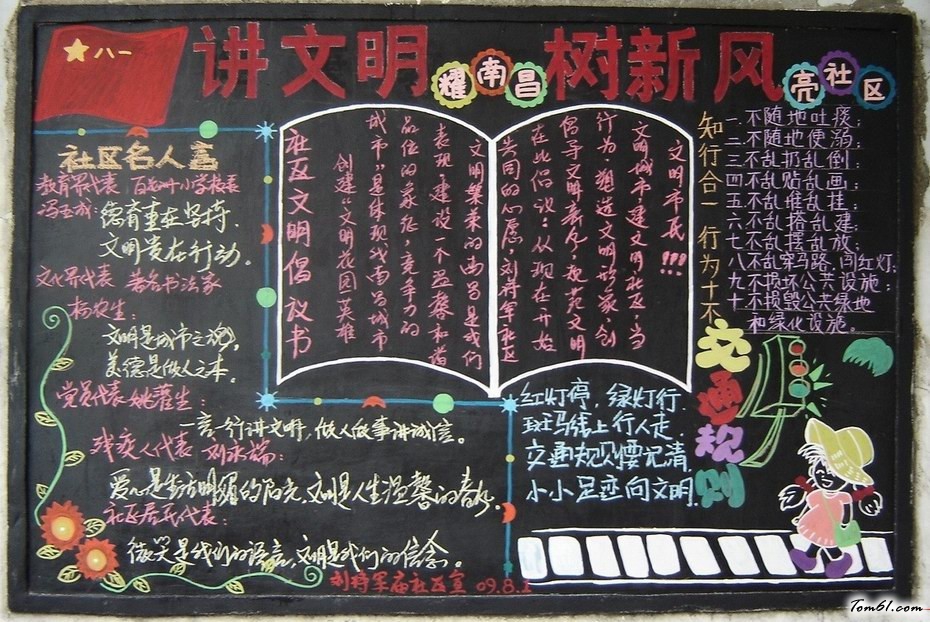 八一
讲文明 耀南昌 树新风 亮社区
社区名人言
教育界代表 百花洲小学校长
冯玉斌:德育重在坚持
文明贵在行动。
文化界代表 著名书法家
杨农生:
文明是城市之魂,
美德是做人之本。
党员代表
一言一行讲文明,做人做事讲诚信。
残疾人代表 刘永瑞:
爱心是生活明媚的阳光,文明是人生温馨的春风。
社区居民代表:
微笑是我们的语言,文明是我们的信念。
文明市民!!!
文明城市,建文明社区,当
行为,塑造文明形象,创
倡导文明新风,规范文明
在此倡议:从现在开始
共同的心愿,刘将军社区
文明繁荣的南昌是我们
表现,建设一个温馨和谐
品位的象征,竞争力的
城市,是体现我南昌城市
创建“文明花园英雄
社区文明倡议书
知行合一 行为十不
一.不随地吐痰;
二.不随地便溺;
三.不乱扔乱倒;
四.不乱贴乱画;
五.不乱堆乱挂;
六.不乱搭乱建;
七.不乱摆乱放;
八.不乱穿马路,闯红灯;
九.不损坏公共设施;
十.不损毁公共绿地
和绿化设施。
交通规则
红灯停,绿灯行.
斑马线上行人走.
交通规则要记清,
小小足迹向文明.
刘将军庙社区宣 09.8.1
Tom61.com